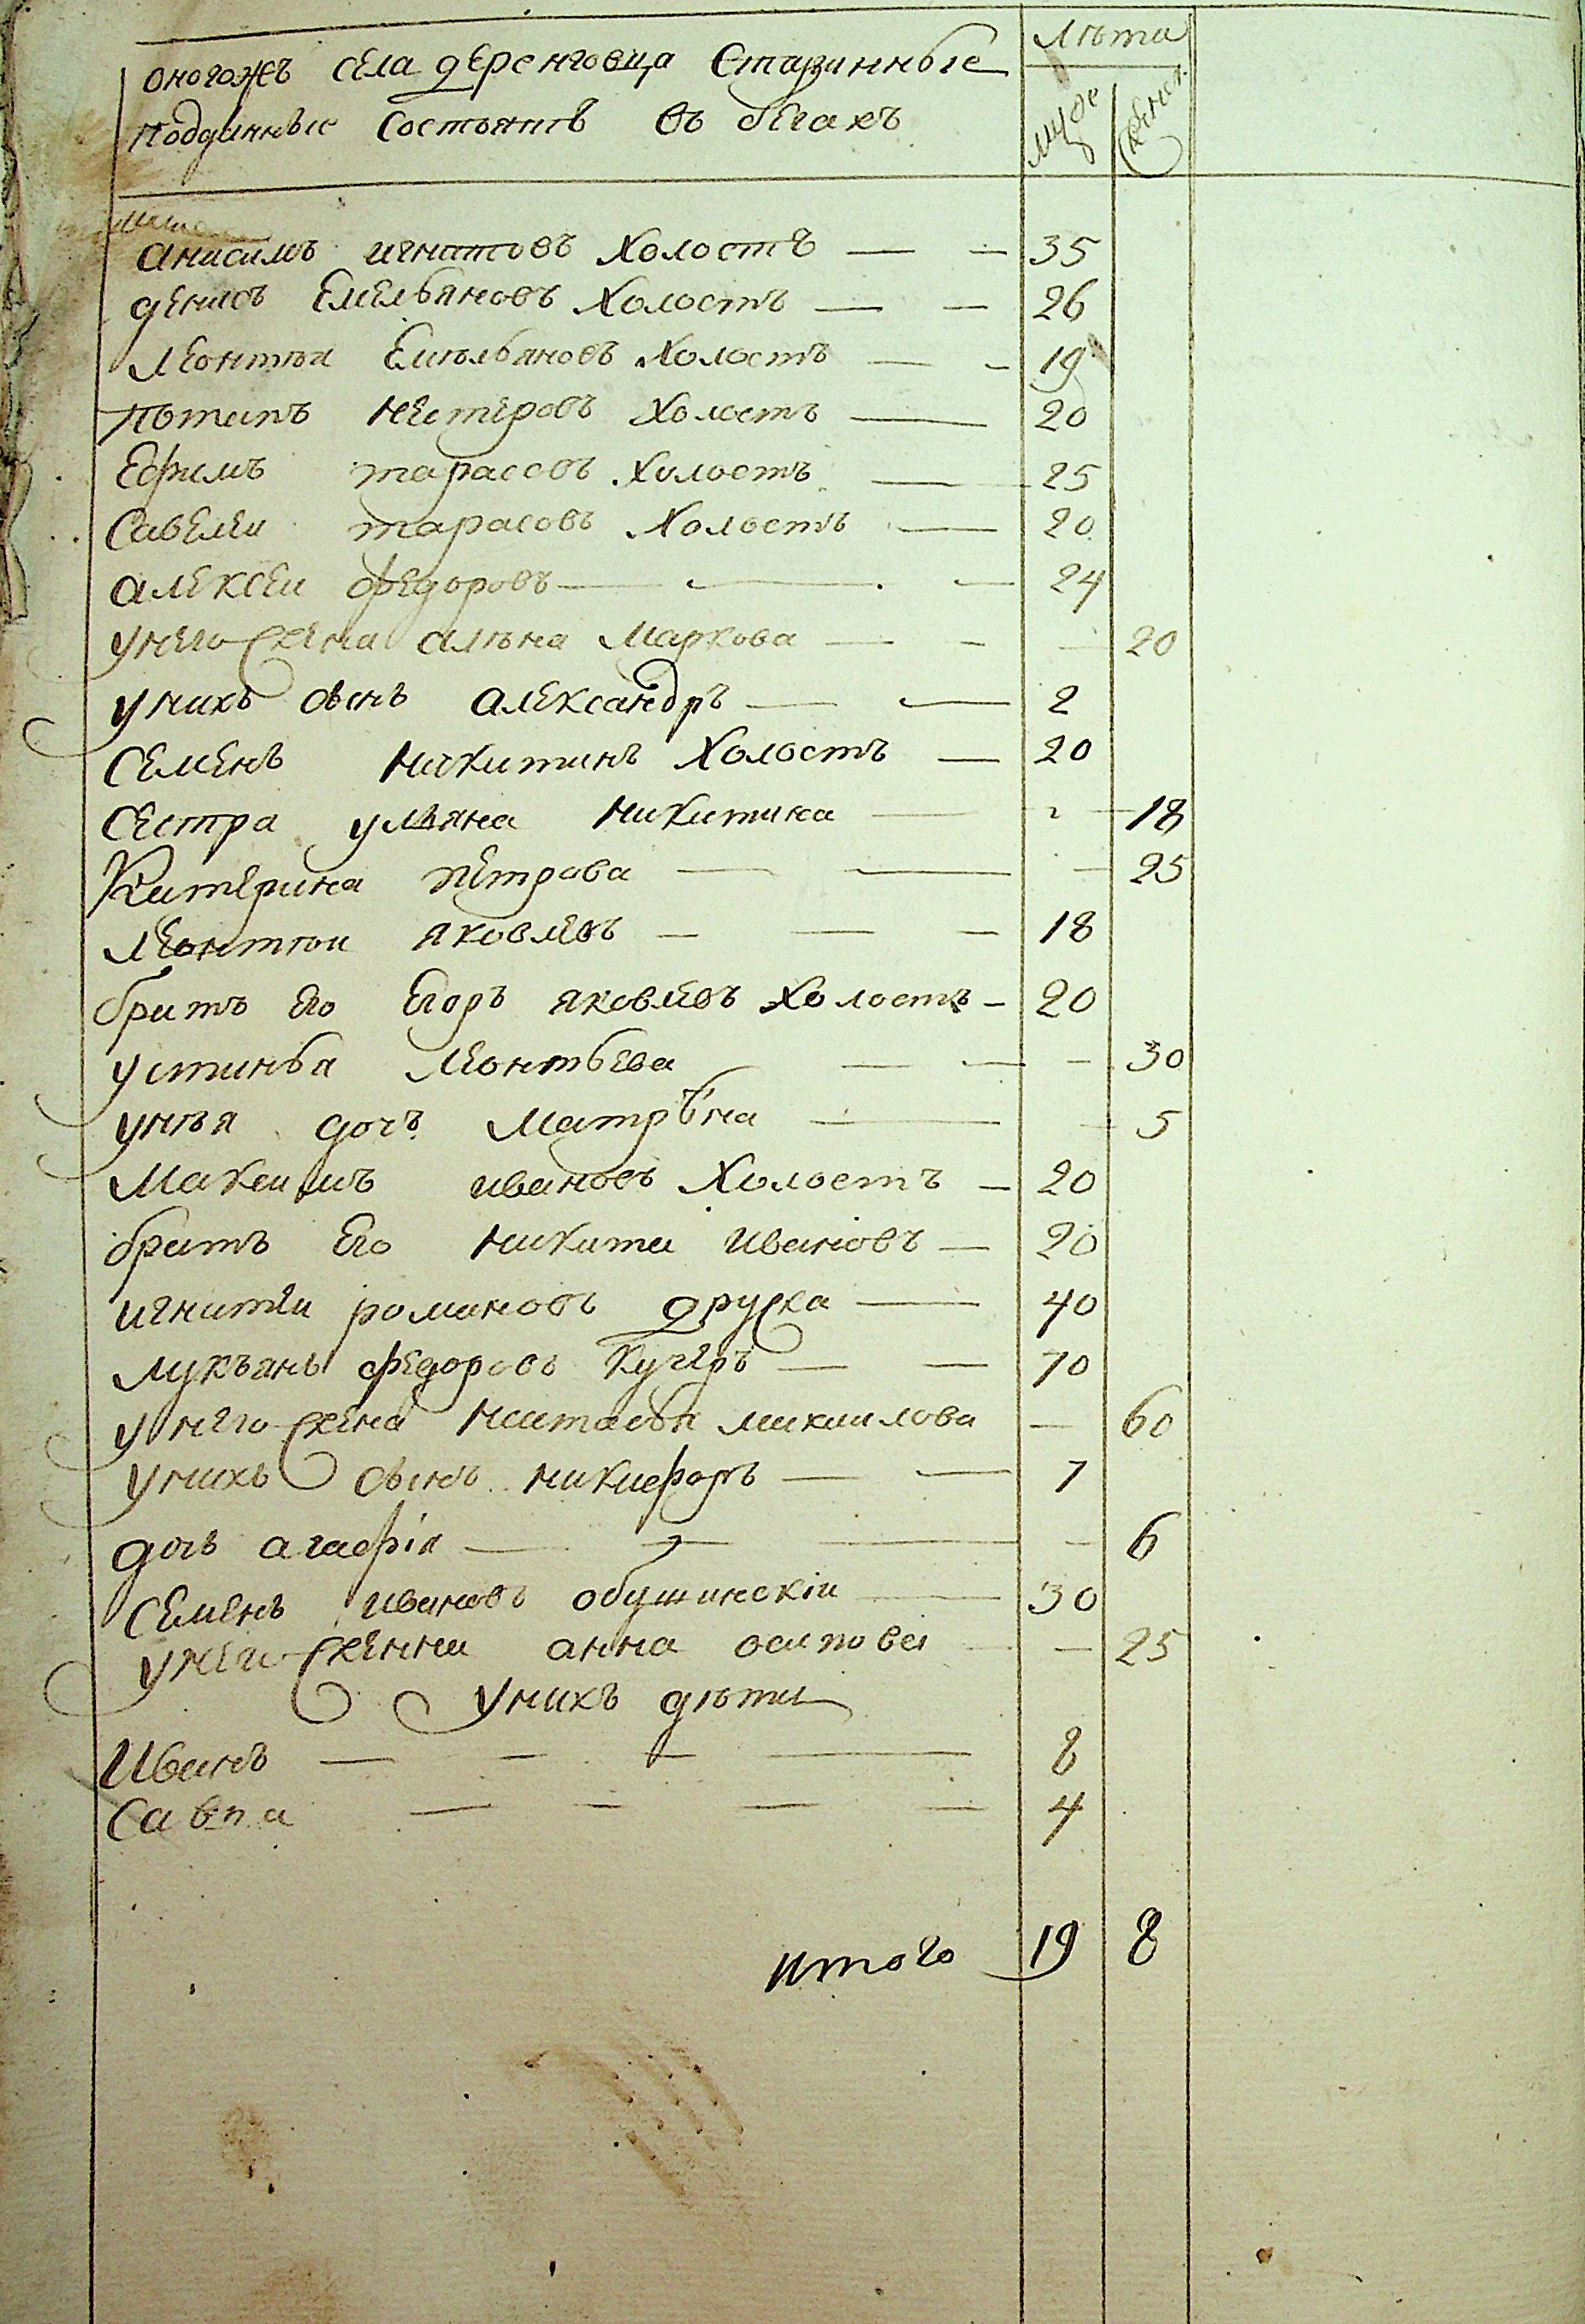 оногожъ села деренговца Старинные
Лѣта
подданные Состоятъ въ бегахъ
муже
женс:
анисимъ игнатовъ Холостъ — — 35
денисъ Емельяновъ Холостъ — — 26
леонтѣи Емѣльяновъ Холостъ — — 19
потапъ нестеровъ Холостъ — 20
Ефимъ тарасовъ Холостъ — 25
Савелеи тарасовъ Холостъ — 20
алексеи федоровъ — — — 24
унего жена алѣна Маркова — — — 20
унихъ сынъ александръ — — 2
Семенъ никитинъ Холостъ — 20
Сестра ульяна никитина — — 18
Катерина петрова — — — 25
леонтѣи яковлевъ — — — 18
братъ его Егоръ яковлевъ Холостъ — 20
устинья леонтьева — — — 30
унѣя дочъ Матрына — — 5
Максимъ ивановъ Холостъ — 20
братъ его никита ивановъ — 20
игнатеи романовъ дружка — 40
лукъянъ федоровъ кучеръ — — 70
унего жена наталья михаилова — 60
унихъ сынъ никифоръ — — 7
дочь агафія — — — — 6
Семенъ ивановъ обушинскіи — 30
унего женна анна осипова — — 25
унихъ дѣти
Иванъ — — — — 8
Савпа — — — — 4
итого 19 8